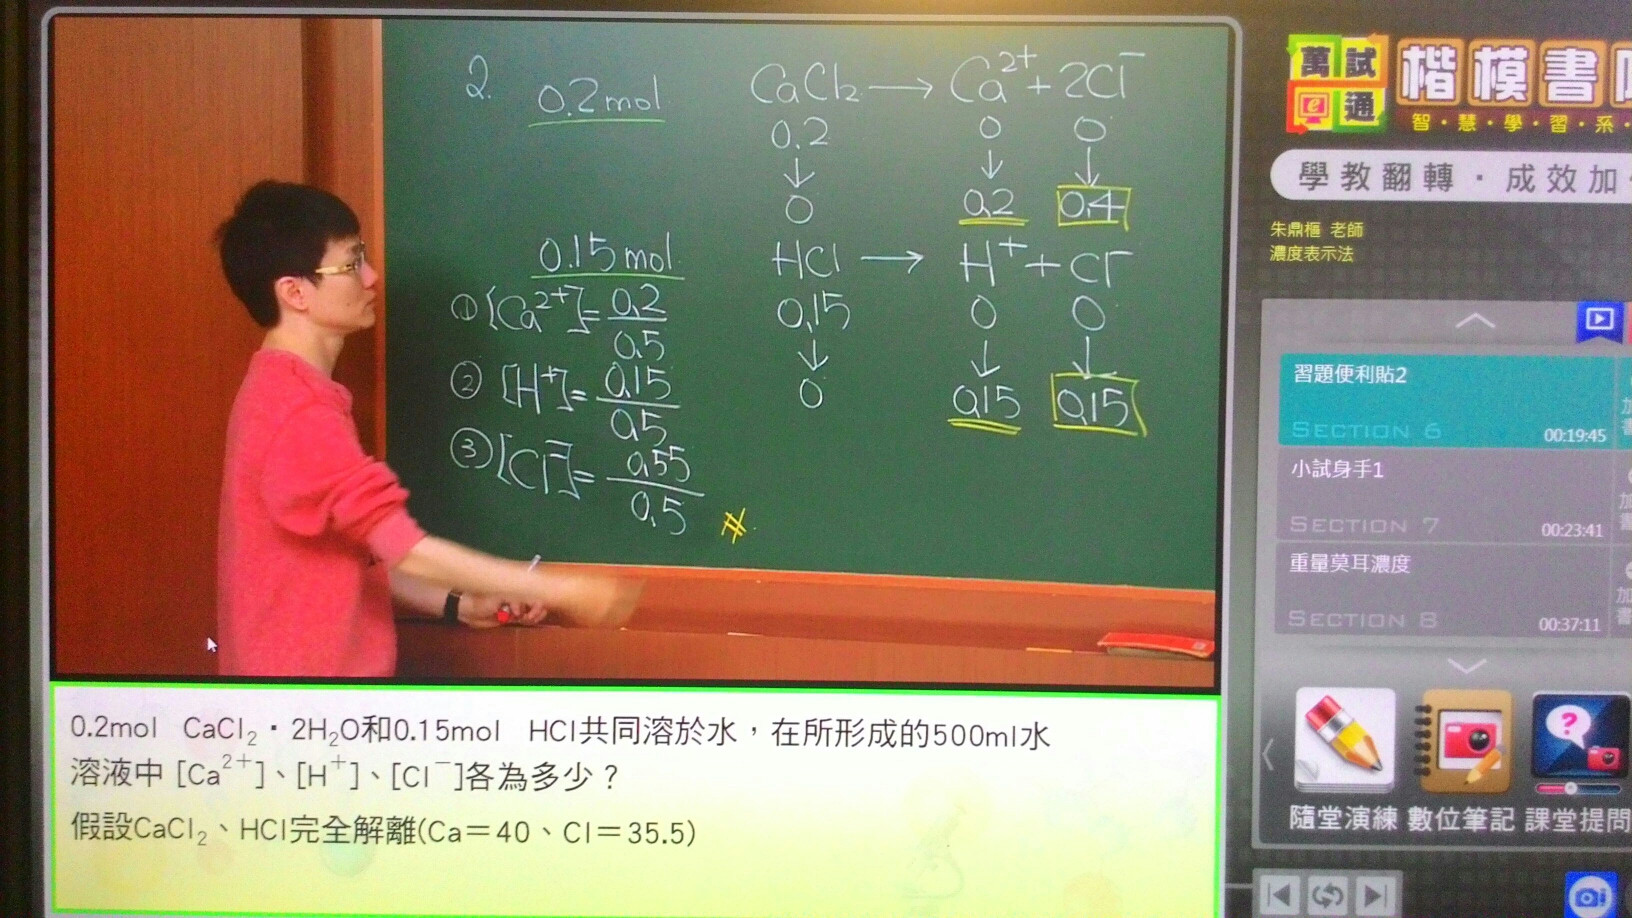 2.
0.2mol
CaCl₂ → Ca²⁺ + 2Cl⁻
0.2 0 0
↓ ↓ ↓
0 0.2 0.4
0.15mol
HCl → H⁺ + Cl⁻
0.15 0 0
↓ ↓ ↓
0 0.15 0.15
① [Ca²⁺]= 0.2/0.5
② [H⁺]= 0.15/0.5
③ [Cl⁻]= 0.55/0.5 #
0.2mol CaCl₂・2H₂O和0.15mol HCl共同溶於水，在所形成的500ml水
溶液中 [Ca²⁺]、[H⁺]、[Cl⁻]各為多少？
假設CaCl₂、HCl完全解離(Ca＝40、Cl＝35.5)
萬試
e通
楷模書
智・慧・學・習・系・
學教翻轉・成效加
朱鼎樞 老師
濃度表示法
習題便利貼2
SECTION 6 00:19:45
小試身手1
SECTION 7 00:23:41
重量莫耳濃度
SECTION 8 00:37:11
加
加
加
?
隨堂演練 數位筆記 課堂提問